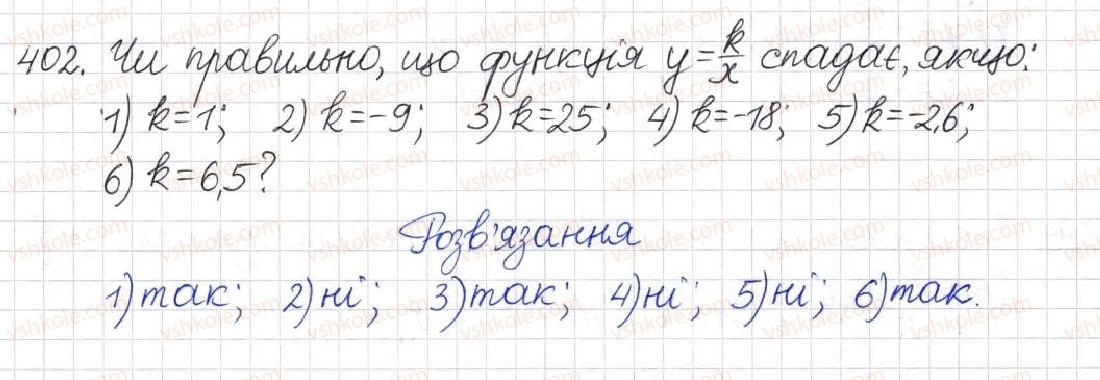 402. Чи правильно, що функція y=k/x спадає, якщо:
1) k=1; 2) k=-9; 3) k=25; 4) k=-18; 5) k=-2,6;
6) k=6,5?
Розв'язання
1) так; 2) ні; 3) так; 4) ні; 5) ні; 6) так.